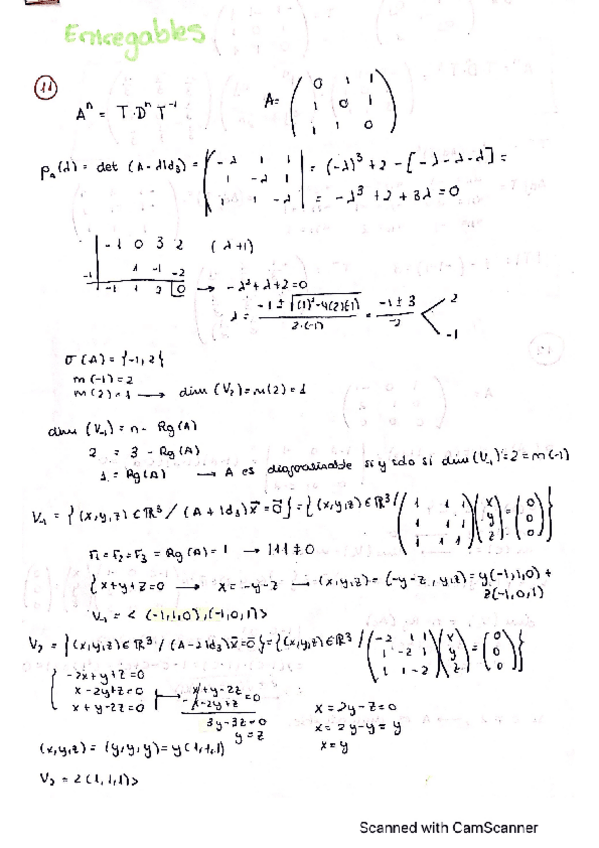 Entregables
11
Aⁿ = T·Dⁿ T⁻¹ A = ( 0 1 1
1 0 1
1 1 0 )
p_A(λ) = det (A-λId₃) = | -λ 1 1
1 -λ 1
1 1 -λ | = (-λ)³ + 2 - [-λ-λ-λ] =
= -λ³ + 2 + 3λ = 0
-1 0 3 2 (λ+1)
-1 1 -1 -2
-1 1 2 0 → -λ²+λ+2=0
λ = (-1 ± √((1)²-4(2)(-1)))/(2·(-1)) = (-1 ± 3)/(-2) < 2
-1
σ(A) = {-1, 2}
m(-1) = 2
m(2) = 1 → dim (V₂) = m(2) = 1
dim (V₋₁) = n - Rg(A)
2 = 3 - Rg(A)
1 = Rg(A) → A es diagonalizable si y solo si dim(V₋₁) = 2 = m(-1)
V₋₁ = {(x,y,z) ∈ ℝ³ / (A + Id₃) x⃗ = 0⃗} = {(x,y,z) ∈ ℝ³ / ( 1 1 1
1 1 1
1 1 1 ) ( x
y
z ) = ( 0
0
0 )}
r₁ = r₂ = r₃ = Rg(A) = 1 → |1| ≠ 0
{x+y+z=0 → x = -y-z → (x,y,z) = (-y-z, y, z) = y(-1,1,0) +
z(-1,0,1)
V₋₁ = < (-1,1,0), (-1,0,1) >
V₂ = {(x,y,z) ∈ ℝ³ / (A-2Id₃) x⃗ = 0⃗} = {(x,y,z) ∈ ℝ³ / ( -2 1 1
1 -2 1
1 1 -2 ) ( x
y
z ) = ( 0
0
0 )}
-2x+y+z=0
x-2y+z=0 x+y-2z =0
x+y-2z=0 -x-2y+z
3y-3z=0
y=z
x = 2y-z=0
x = 2y-y = y
x=y
(x,y,z) = (y,y,y) = y(1,1,1)
V₂ = <(1,1,1)>
Scanned with CamScanner